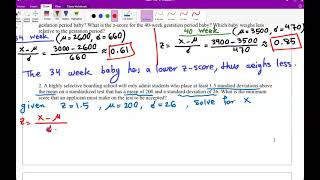 gestation period baby? What is the z-score for the 40-week gestation period baby? Which baby weighs less
relative to the gestation period?
34 week (μ=2600, σ=660)
Z = x-μ / σ = 3000-2600 / 660 ≈ 0.61
40 week (μ=3500, σ=470)
Z = x-μ / σ = 3900-3500 / 470 ≈ 0.85
The 34 week baby has a lower z-score, thus weighs less.
2. A highly selective boarding school will only admit students who place at least 1.5 standard deviations above
the mean on a standardized test that has a mean of 200 and a standard deviation of 26. What is the minimum
score that an applicant must make on the test to be accepted?
given z=1.5, μ=200, σ=26, solve for x
Z = x-μ / σ
1